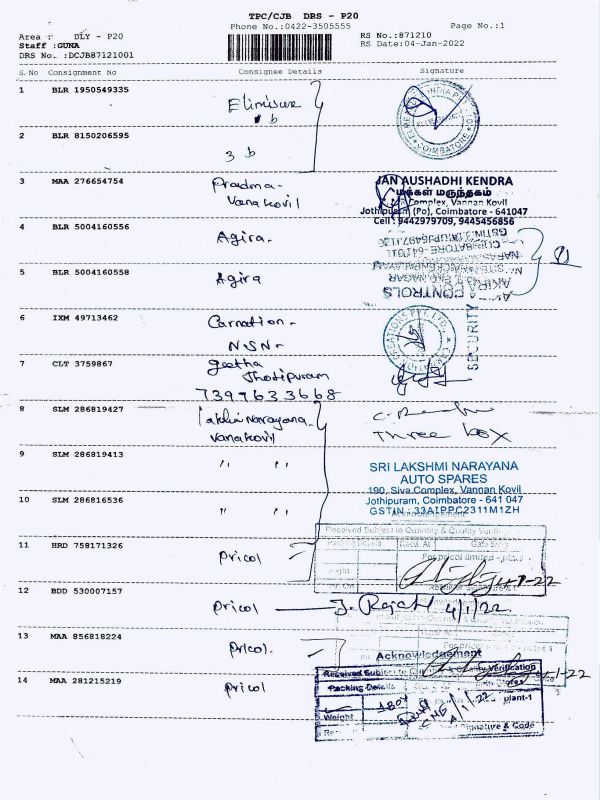 TPC/CJB DRS - P20
Phone No.:0422-3505555
Page No.:1
Area : DLY - P20
Staff :GUNA
DRS No. :DCJB87121001
RS No.:871210
RS Date:04-Jan-2022
S.No Consignment No Consignee Details Signature
1 BLR 1950549335
2 BLR 8150206595
3 b
3 MAA 276654754
Vanakovil
JAN AUSHADHI KENDRA
மக்கள் மருந்தகம்
Complex, Vannan Kovil
Jothipuram (Po), Coimbatore - 641047
Cell : 9442979709, 9445456856
4 BLR 5004160556 Agira-
5 BLR 5004160558 Agira
CONTROLS
6 IXM 49713462 Carnation-
NSN-
SECURITY
7 CLT 3759867 geetha
Jhotipuram
7397633668
8 SLM 286819427
Vanakovil
Three box
9 SLM 286819413 " "
SRI LAKSHMI NARAYANA
AUTO SPARES
190, Siva Complex, Vannan Kovil
Jothipuram, Coimbatore - 641 047
GSTIN : 33AIPPC2311M1ZH
10 SLM 286816536 " "
11 HRD 758171326 Pricol
Received Subject to Quantity & Quality
12 BDD 530007157 Pricol J. Rajesh 4/1/22
13 MAA 856818224 Pricol
Acknowledgement
Received Subject to Quantity & Quality Verification
Packing Details
14 MAA 281215219 Pricol
plant-1
Weight
Signature & Code